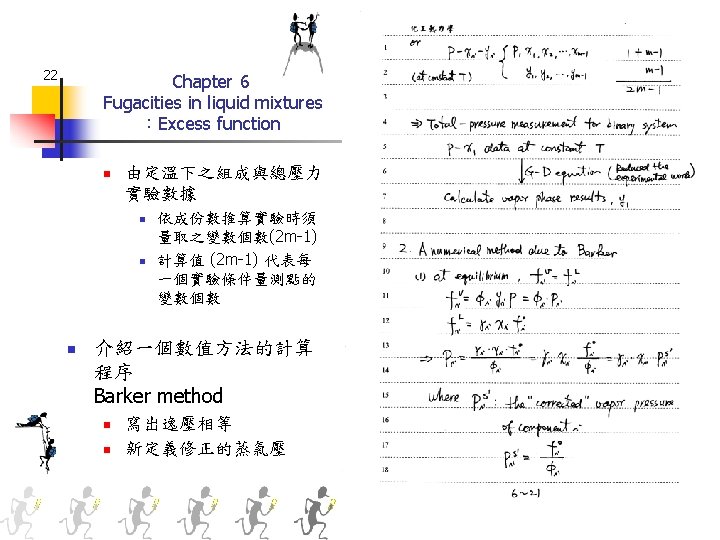 22
Chapter 6
Fugacities in liquid mixtures
：Excess function
由定溫下之組成與總壓力
實驗數據
依成份數推算實驗時須
量取之變數個數(2m-1)
計算值 (2m-1) 代表每
一個實驗條件量測點的
變數個數
介紹一個數值方法的計算
程序
Barker method
寫出逸壓相等
新定義修正的蒸氣壓
化工熱力學
1 or P-xᵢ-yᵢ { P, x₁, x₂, … xm-1 1+m-1
2 (at constant T) y₁, y₂, … ym-1 m-1
3 2m-1
4 ⇒ Total-pressure measurement for binary system
5 P-xᵢ data at constant T
6 ↓ G-D equation (Reduced the experimental work)
7 calculate vapor phase results, y₁
8
9 2. A numerical method due to Barker
10 (1) at equilibrium, fᵢᵛ = fᵢᴸ
11 fᵢᵛ = ϕᵢ yᵢ P = ϕᵢ Pᵢ
12 fᵢᴸ = γᵢ xᵢ fᵢ°
13 ⇒ Pᵢ = γᵢ xᵢ fᵢ° / ϕᵢ = γᵢ xᵢ fᵢ° / ϕᵢ = γᵢ xᵢ Pᵢˢ'
14
15 where Pᵢˢ' : the "corrected" vapor pressure
16 of component i
17 Pᵢˢ' = fᵢ° / ϕᵢ
18
6~21